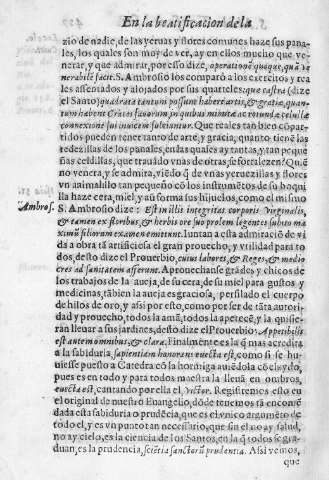 En la beatificacion de la
zio de nadie, de las yeruas y flores comunes haze sus pana-
les, los quales son muy de ver, ay en ellos mucho que ve-
nerar, y que admirar, por esso dize, operationē quoque, quā ve
nerabilē facit. S. Ambrosio los comparò a los exercitos, y rea
les assentados y alojados por sus quarteles: que castra (dize
el Santo) quadrata tantum possunt habere artis, & gratiæ, quan-
tum habent crates fauorum, in quibus minutæ ac rotundæ celullæ
connexione sui inuicem fulciuntur. Que reales tan bien cōpar-
tidos pueden tener tanto de arte, y gracia, quanto tienē las
redezillas de los panales, en las quales ay tantas, y tan peque
ñas celdillas, que trauādo vnas de otras, se fortalezen? Quiē
no venera, y se admira, viēdo q̄ de vnas yeruezillas y flores
vn animalillo tan pequeño cō los instrumētos de su boqui
lla haze cera, miel, y aū forma sus hijuelos, como el mismo
Ambros. S. Ambrosio dize: Est in illis integritas corporis virginalis,
& tamen ex floribus, & herbis ore suo prolem legentes subito ma
ximū filiorum examen emittunt. Iuntan a esta admiració de vi
da a obra tā artificiosa el gran prouecho, y vtilidad para to
dos, desto dize el Prouerbio, cuius labores, & Reges, & medio
cres ad sanitatem asserunt. Aprouechanse grādes y chicos de
los trabajos de la aueja, de su cera, de su miel para gustos y
medicinas, tābien la aueja es graciosa, perfilado el cuerpo
de hilos de oro, y assi por esto, como por ser de tāta autori-
dad y prouecho, todos la amā, todos la apetecē, y la quisie-
ran lleuar a sus jardines, desto dize el Prouerbio: Appetibilis
est autem omnibus, & clara. Finalmente es la q̄ mas acredita
a la sabiduria, sapientiam honorans euecta est, como si se hu-
uiesse puesto a Catedra cō la hormiga auiēdola cōcluydo,
pues es en todo y para todo maestra la lleuā en ombros,
euecta est, cantando por ella el victor. Registremos esto en
el original de nuestro Euangelio, dōde tenemos tā encomē
dada esta sabiduria o prudēcia, que es el vnico argumēto de
todo el, y es vn punto tan necessario, que sin el no ay salud,
no ay cielo, es la ciencia de los Santos, en la q̄ todos se gra-
duan, es la prudencia, sciētia sanctorū prudentia. Assi vemos,
que